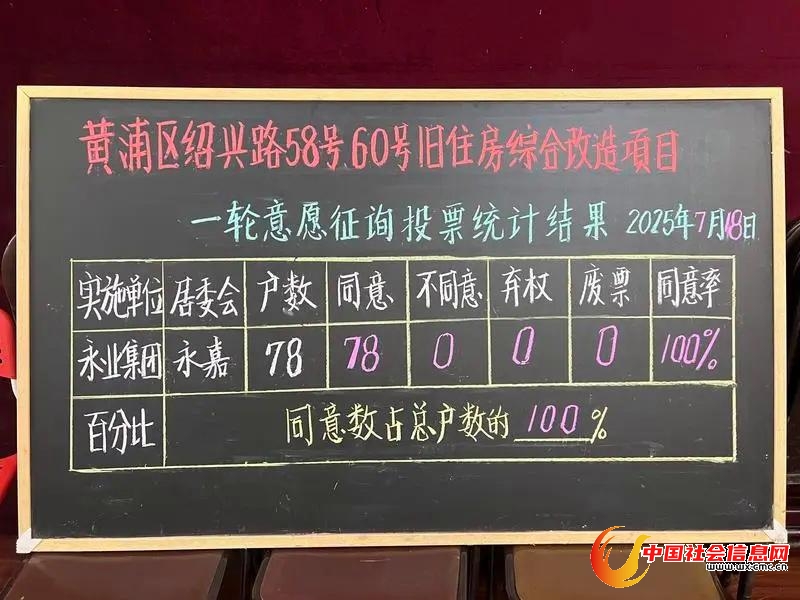 黄浦区绍兴路58号、60号旧住房综合改造项目
一轮意愿征询投票统计结果 2025年7月18日
实施单位 居委会 户数 同意 不同意 弃权 废票 同意率
永业集团 永嘉 78 78 0 0 0 100%
百分比 同意数占总户数的 100 %
中国社会信息网
www.wxcmc.cn